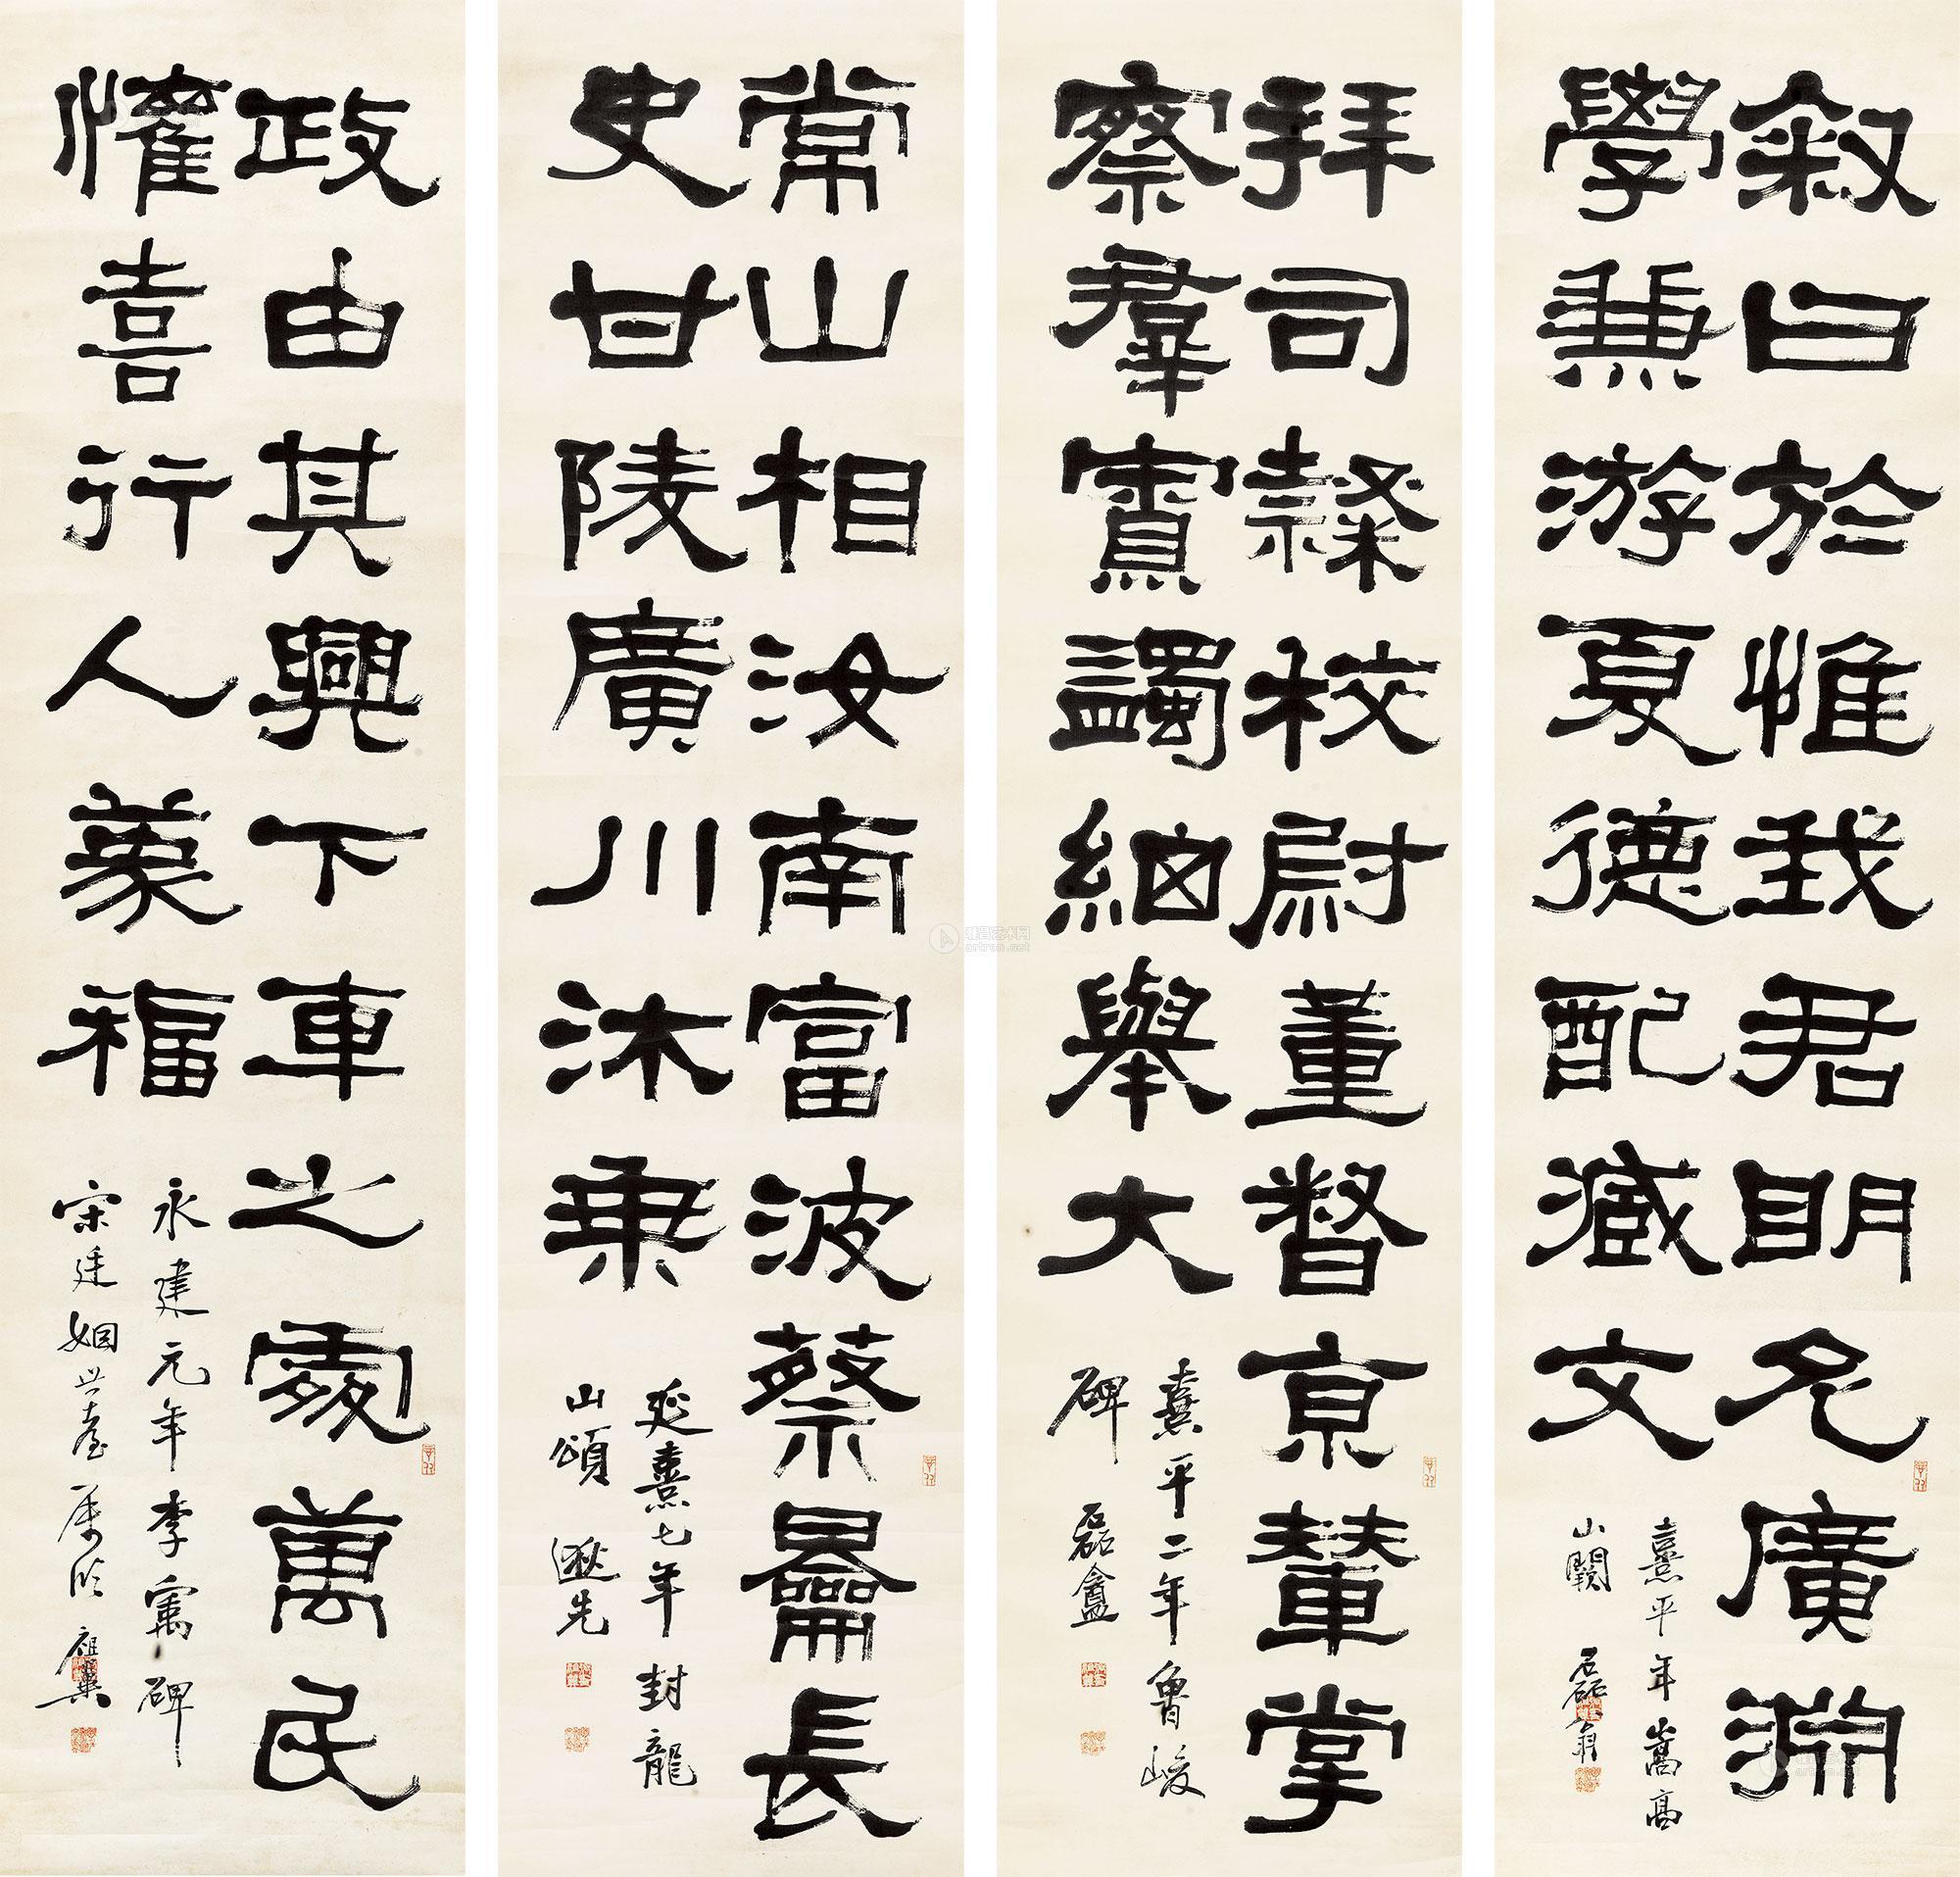 叙曰於惟我君明允廣淵
學兼游夏德配臧文
熹平年嵩高
山闕 磊翁
拜司隸校尉董督京輦掌
察羣寮蠲細舉大
熹平二年魯峻
碑 磊盦
常山相汝南富波蔡長
史甘陵廣川沐乘
延熹七年封龍
山頌 逖先
政由其興下車之處萬民
懽喜行人蒙福
永建元年李寓碑
宋廷姻世臺属 祖翼